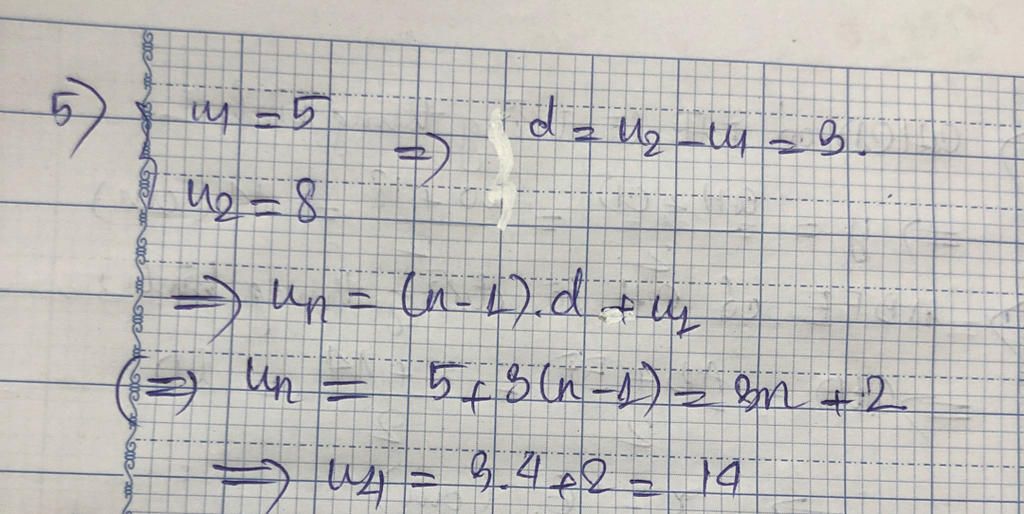 5) u1 = 5 => d = u2 - u1 = 3.
u2 = 8
=> un = (n-1).d + u1
(=>) un = 5+3(n-1) = 3n + 2
=> u4 = 3.4+2 = 14